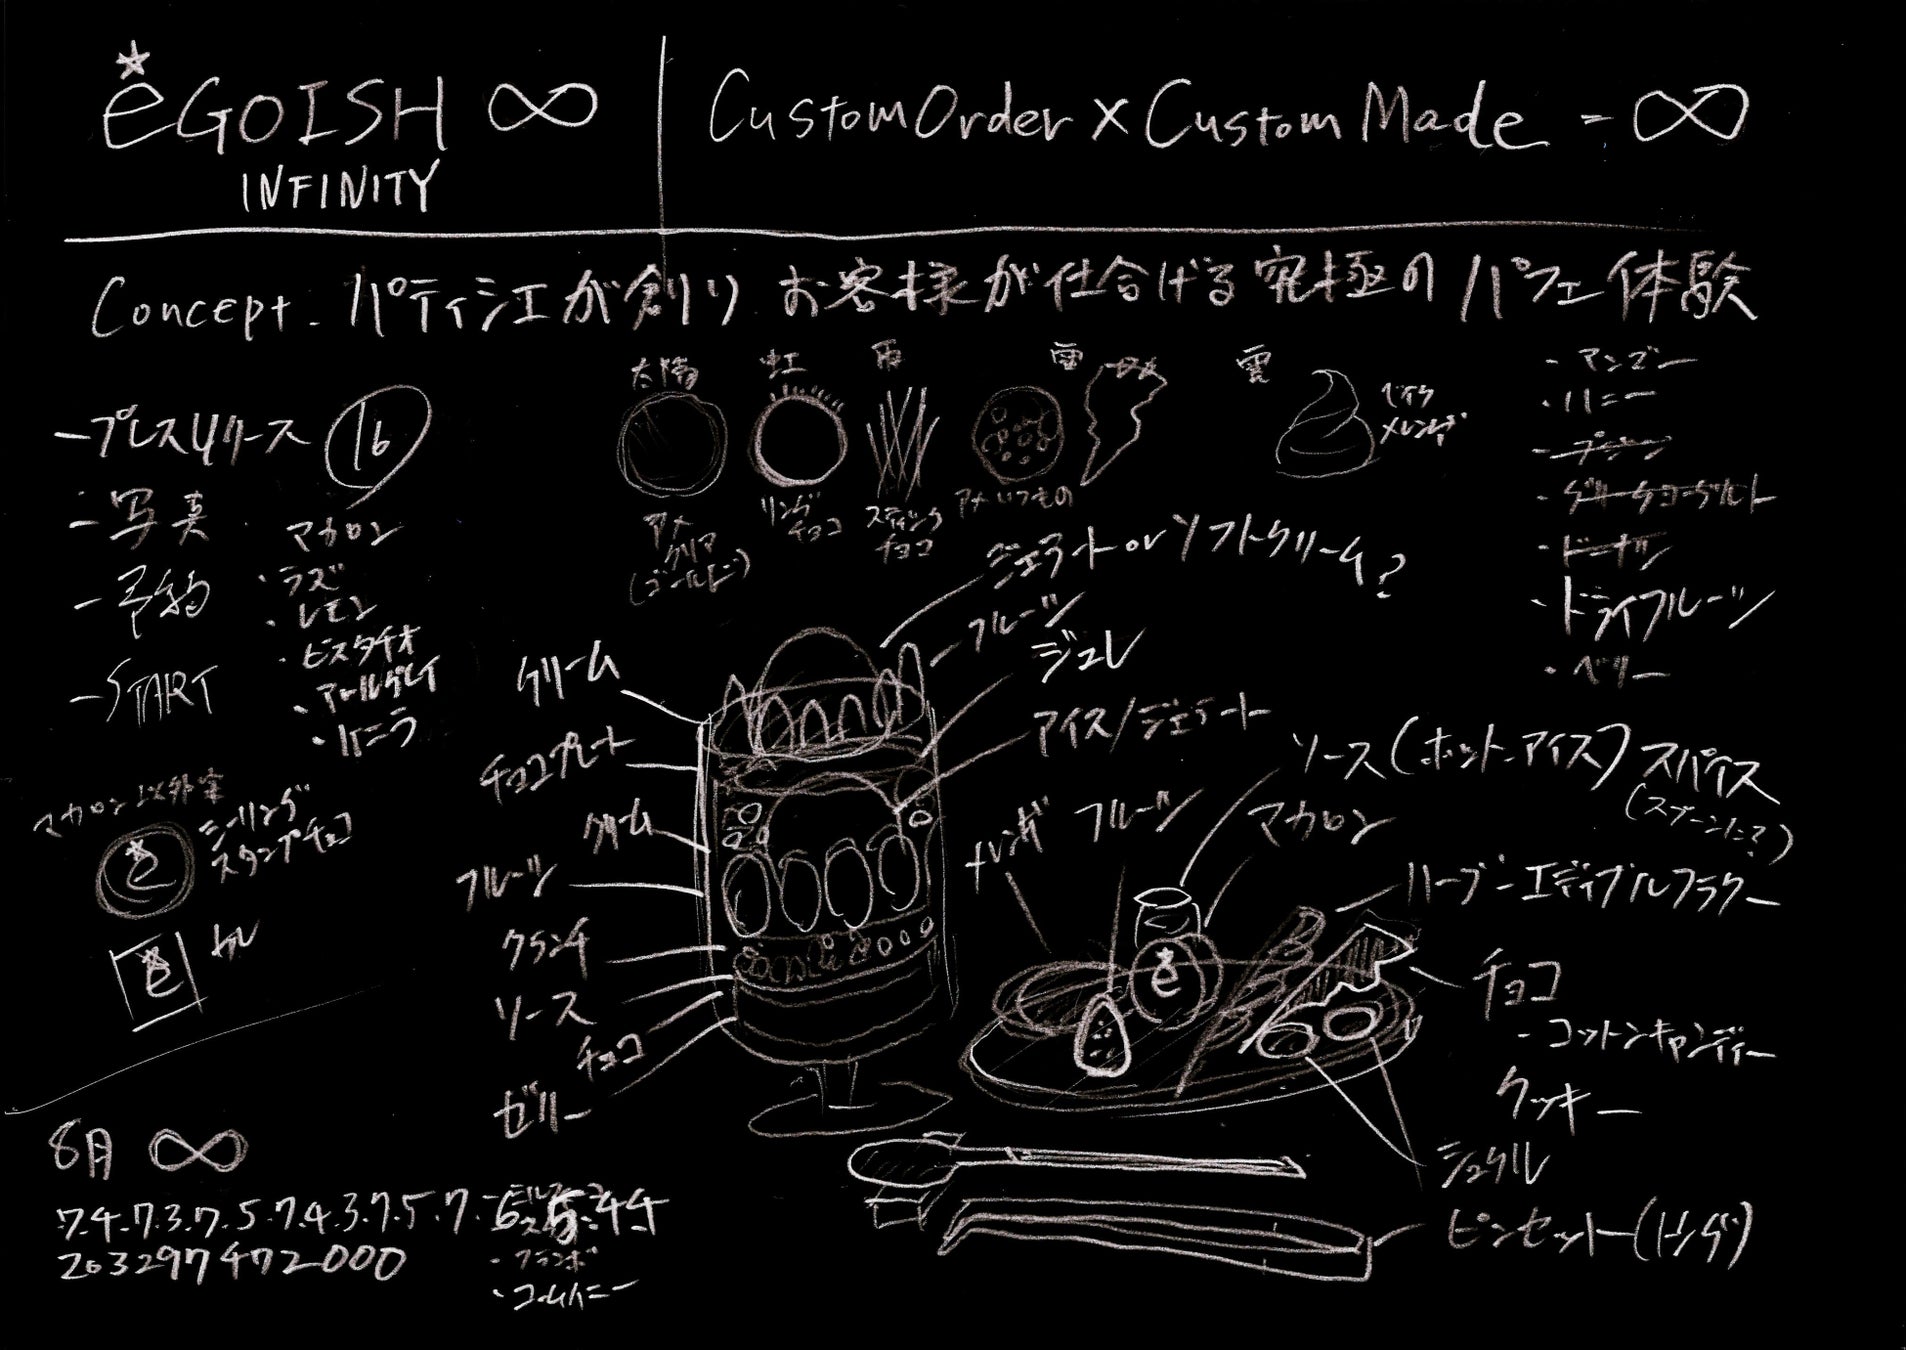 eGOISH ∞
INFINITY
CustomOrder×CustomMade=∞
Concept. パティシエが創り お客様が仕合げる究極のパフェ体験
-プレスリリース 16
-写真
-予約
-START
マカロン
・ラズ
・レモン
・ピスタチオ
・アールグレイ
・バニラ
マカロン以外案
シーリング
スタンプチョコ
e
e
太陽
アメ
クリア
(ゴールド)
虹
リング
チョコ
雨
スティック
チョコ
アメいつもの
雷
雲
ベイク
メレンゲ
・マンゴー
・ハニー
・プラリン
・グリークヨーグルト
・ドーナツ
・ドライフルーツ
・ベリー
ジェラートorソフトクリーム?
フルーツ
ジュレ
アイス/ジェラート
クリーム
チョコプレート
クリーム
フルーツ
クランチ
ソース
チョコ
ゼリー
ソース(ホット-アイス)
スパイス
(スプーンに?)
メレンゲ
フルーツ
マカロン
e
ハーブ-エディブルフラワー
チョコ
-コットンキャンディー
クッキー
シュクル
ピンセット(トング)
8月 ∞
7.4.7.3.7.5.7.4.3.7.5.7.6.5.4.4
203297472000
・フランボ
・コームハニー